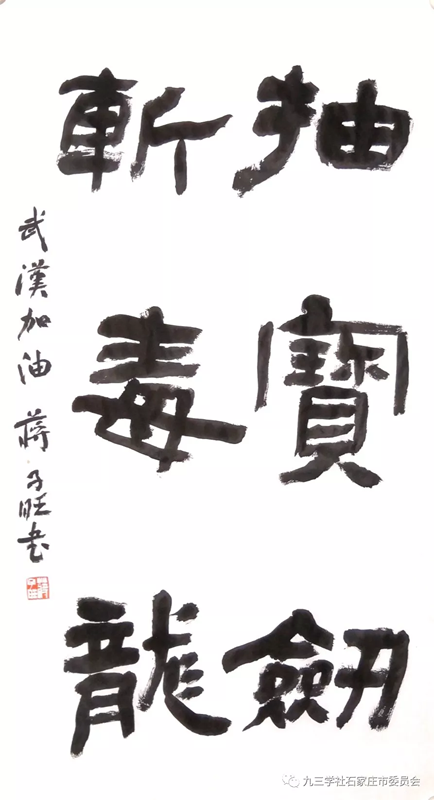 抽寶劒
斬毒龍
武漢加油 蔣子旺书
九三学社石家庄市委员会